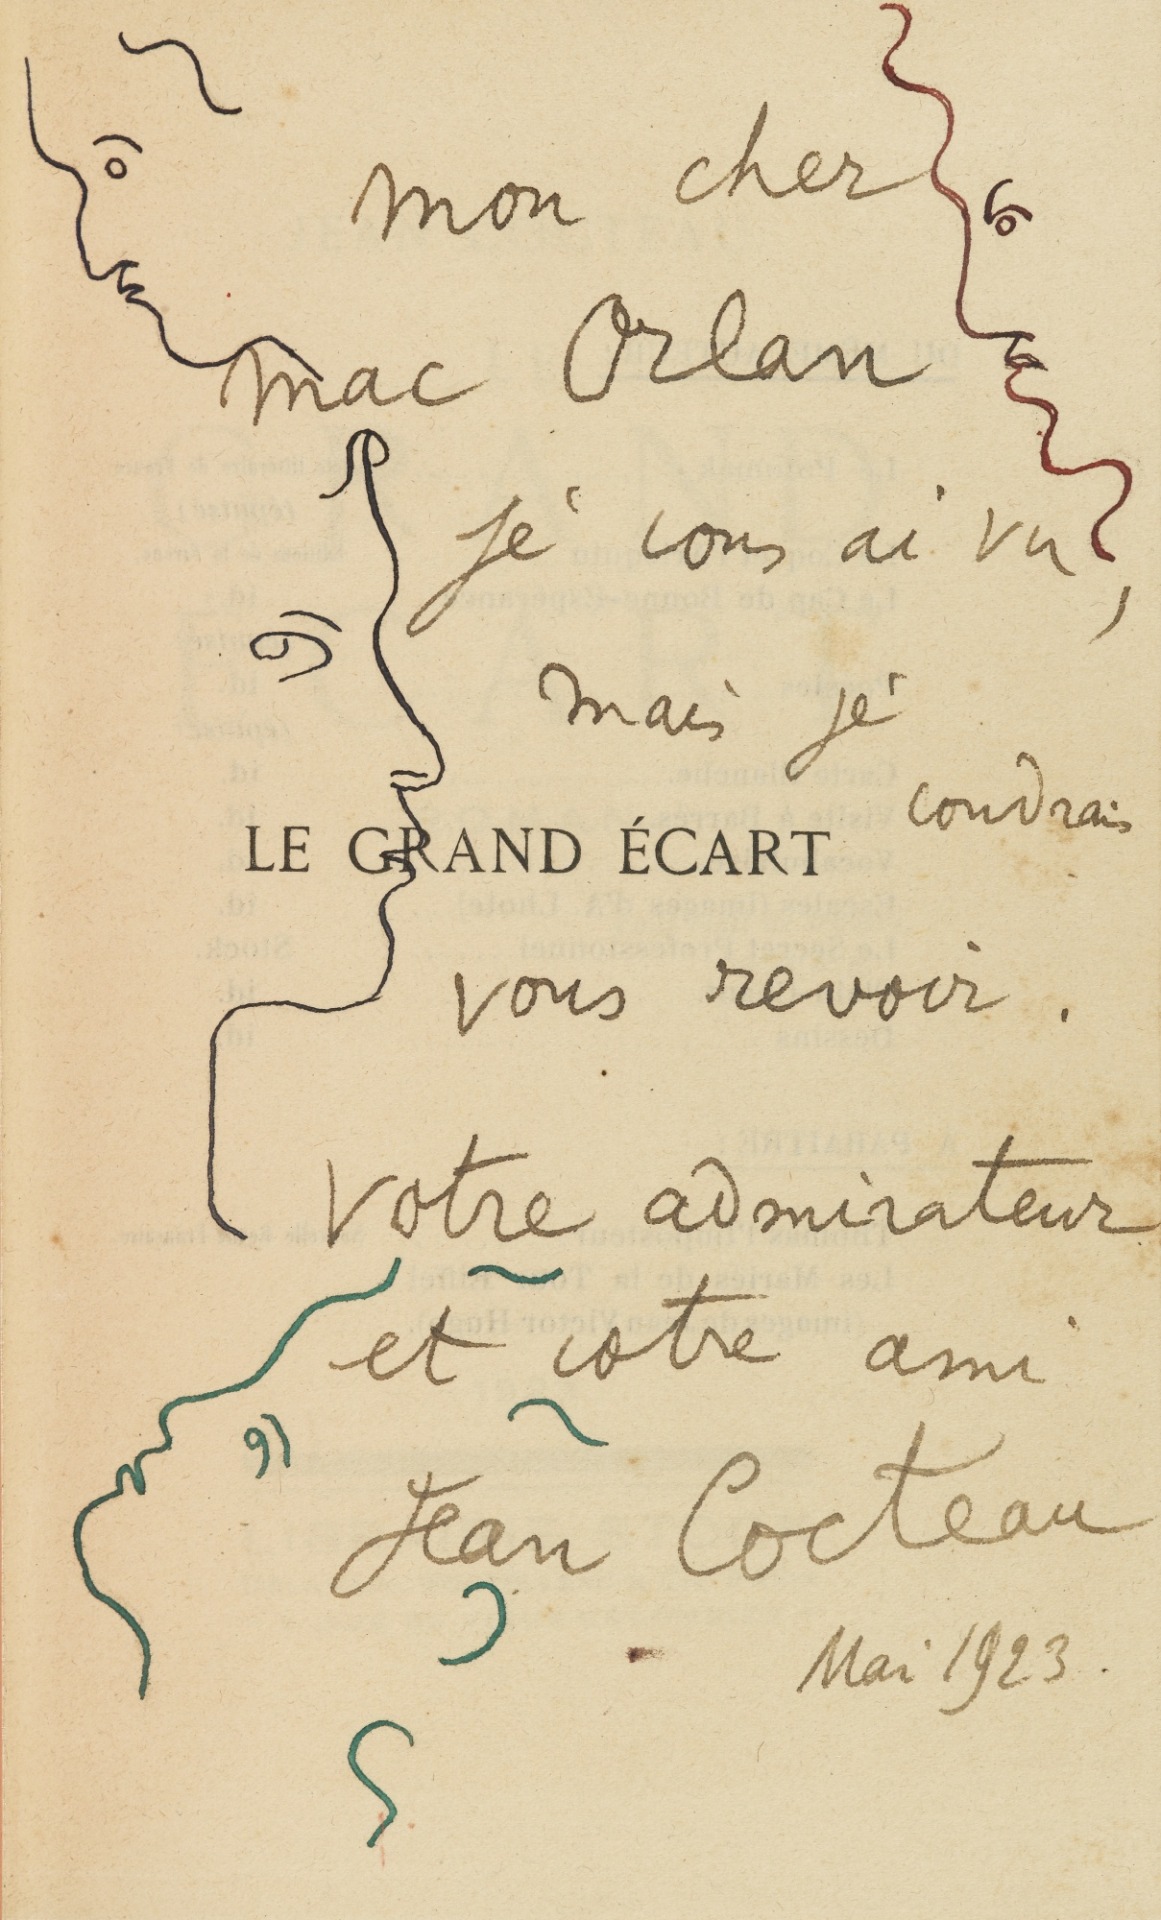 mon cher
Mac Orlan
je vous ai vu,
mais je
voudrais
LE GRAND ÉCART
vous revoir.
Votre admirateur
et votre ami
Jean Cocteau
Mai 1923.